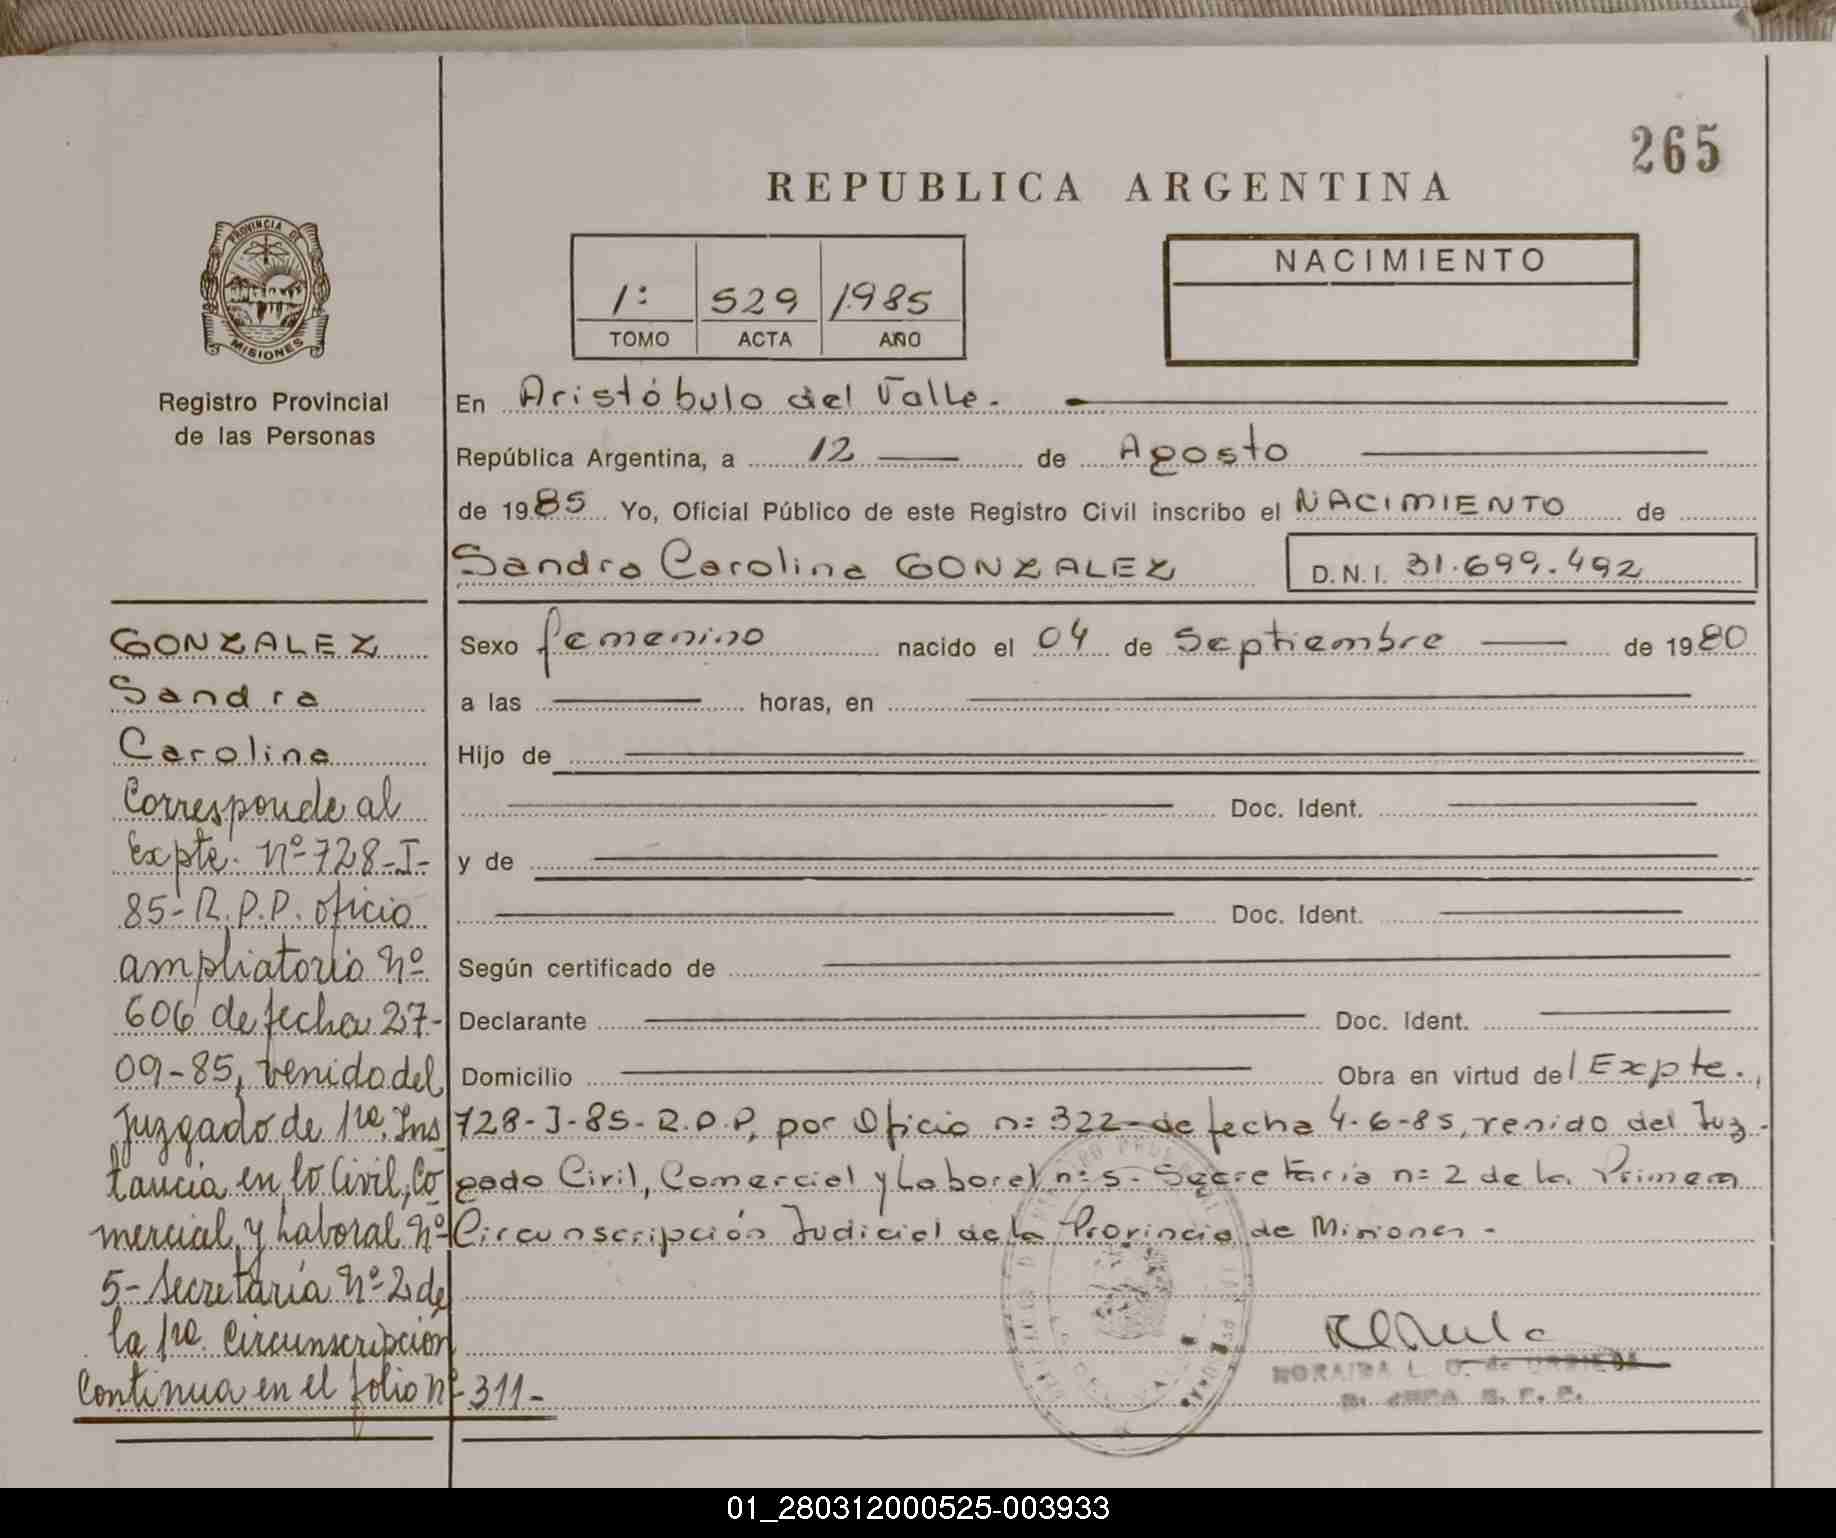 265
REPUBLICA ARGENTINA
PROVINCIA DE
MISIONES
Registro Provincial
de las Personas
1: 529 1985
TOMO ACTA AÑO
NACIMIENTO
En Aristóbulo del Valle.
República Argentina, a 12 de Agosto
de 1985 Yo, Oficial Público de este Registro Civil inscribo el NACIMIENTO de
Sandra Carolina GONZALEZ D.N.I. 31.699.492
Sexo femenino nacido el 04 de Septiembre de 1980
a las horas, en
Hijo de
Doc. Ident.
y de
Doc. Ident.
Según certificado de
Declarante Doc. Ident.
Domicilio Obra en virtud del Expte.
728-I-85-R.P.P, por Oficio n: 322-de fecha 4-6-85, venido del Juz-
gado Civil, Comercial y Laboral n: 5- Secretaria n: 2 de la Primera
Circunscripción Judicial de la Provincia de Misiones -
GONZALEZ
Sandra
Carolina
Corresponde al
Expte. Nº 728-I-
85-R.P.P. oficio
ampliatorio Nº
606 de fecha 27-
09-85, venido del
Juzgado de 1ra. Ins
tancia en lo Civil, Co
mercial y Laboral Nº
5- Secretaría Nº 2 de
la 1ra. Circunscripción
Continua en el folio Nº 311-
NORAIDA L.
01_280312000525-003933